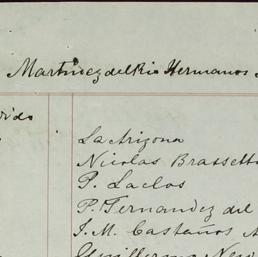 Martinez del Rio Hermanos
La Arizona
Nicolas Brassetto
P. Laclos
P. Fernandez del
J. M. Castaños
Guillermo